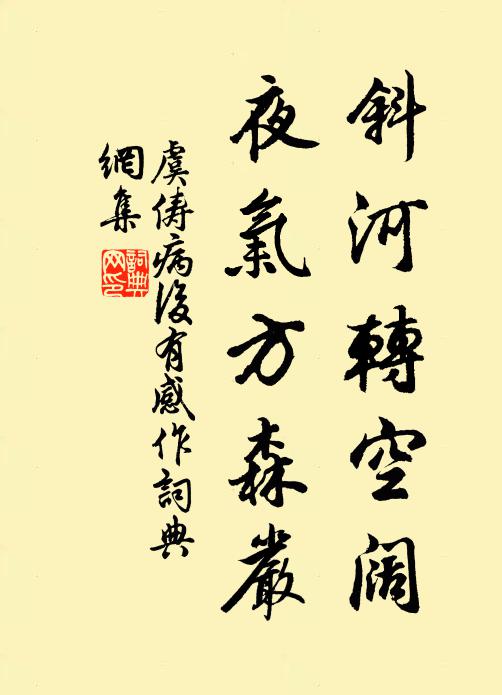 斜河轉空闊
夜氣方森嚴
虞儔病後有感作詞典
網集
詞典
网印